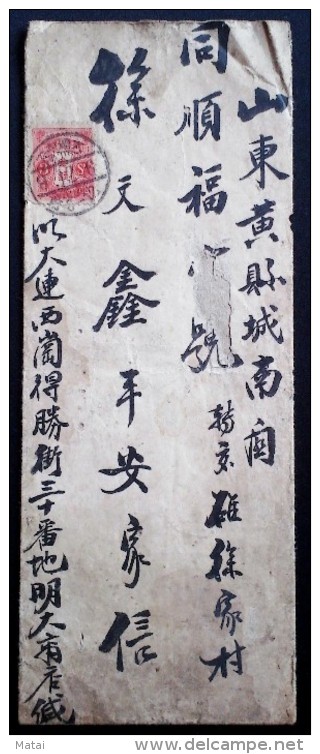 山東黃縣城南關
同順福 號 轉交 徐家村
徐文鑫平安家信
大連西崗得勝街三十番地明大 店緘
Matai
delcampe.net